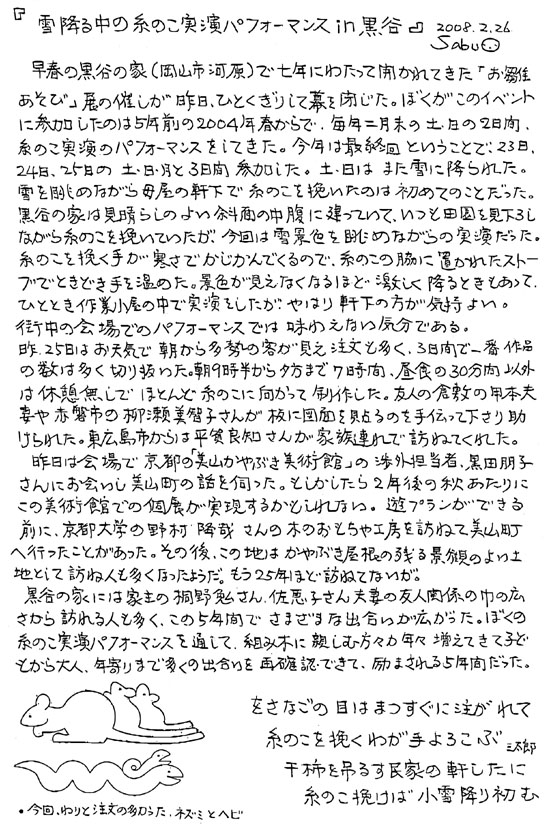 『雪降る中の糸のこ実演パフォーマンス in 黒谷』 2008.2.26
Sabu
早春の黒谷の家(岡山市河原)で七年にわたって開かれてきた「お雛
あそび」展の催しが昨日、ひとくぎりして幕を閉じた。ぼくがこのイベント
に参加したのは5年前の2004年春からで、毎年二月末の土・日の2日間、
糸のこ実演のパフォーマンスをしてきた。今年は最終回ということで、23日、
24日、25日の土・日・月と3日間参加した。土・日はまた雪に降られた。
雪を眺めながら母屋の軒下で糸のこを挽いたのは初めてのことだった。
黒谷の家は見晴らしのよい斜面の中腹に建っていて、いつも田園を見下ろし
ながら糸のこを挽いていたが、今回は雪景色を眺めながらの実演だった。
糸のこを挽く手が寒さでかじかんでくるので、糸のこの脇に置かれたストー
ブでときどき手を温めた。景色が見えなくなるほど激しく降るときもあって、
ひととき作業小屋の中で実演をしたが、やはり軒下の方が気持よい。
街中の会場でのパフォーマンスでは味わえない気分である。
昨、25日はお天気で朝から多勢の客が見え注文も多く、3日間で一番作品
の数は多く切り抜いた。朝9時半から夕方まで7時間、昼食の30分間以外
は休憩無しでほとんど糸のこに向かって制作した。友人の倉敷の甲本夫
妻や赤磐市の柳瀬美智子さんが板に図面を貼るのを手伝って下さり助
けられた。東広島市からは平賀良知さんが家族連れで訪ねてくれた。
昨日は会場で京都の「美山かやぶき美術館」の渉外担当者、黒田朋子
さんにお会いし美山町の話を伺った。もしかしたら2年後の秋あたりに
この美術館での個展が実現するかもしれない。遊プランができる
前に、京都大学の野村隆哉さんの木のおもちゃ工房を訪ねて美山町
へ行ったことがあった。その後、この地はかやぶき屋根の残る景観のよい土
地として訪ね人も多くなったようだ。もう25年ほど訪ねてないが。
黒谷の家には家主の桐野勉さん、佐恵子さん夫妻の友人関係の巾の広
さから訪れる人も多く、この5年間でさまざまな出合いが広がった。ぼくの
糸のこ実演パフォーマンスを通して、組み木に親しむ方々が年々増えてきて子ど
もから大人、年寄りまで多くの出合いを再確認できて、励まされる5年間だった。
をさなごの目はまつすぐに注がれて
糸のこを挽くわが手よろこぶ 三太郎
干柿を吊るす民家の軒したに
糸のこ挽けば小雪降り初む
・今回、わりと注文の多かった、ネズミとヘビ